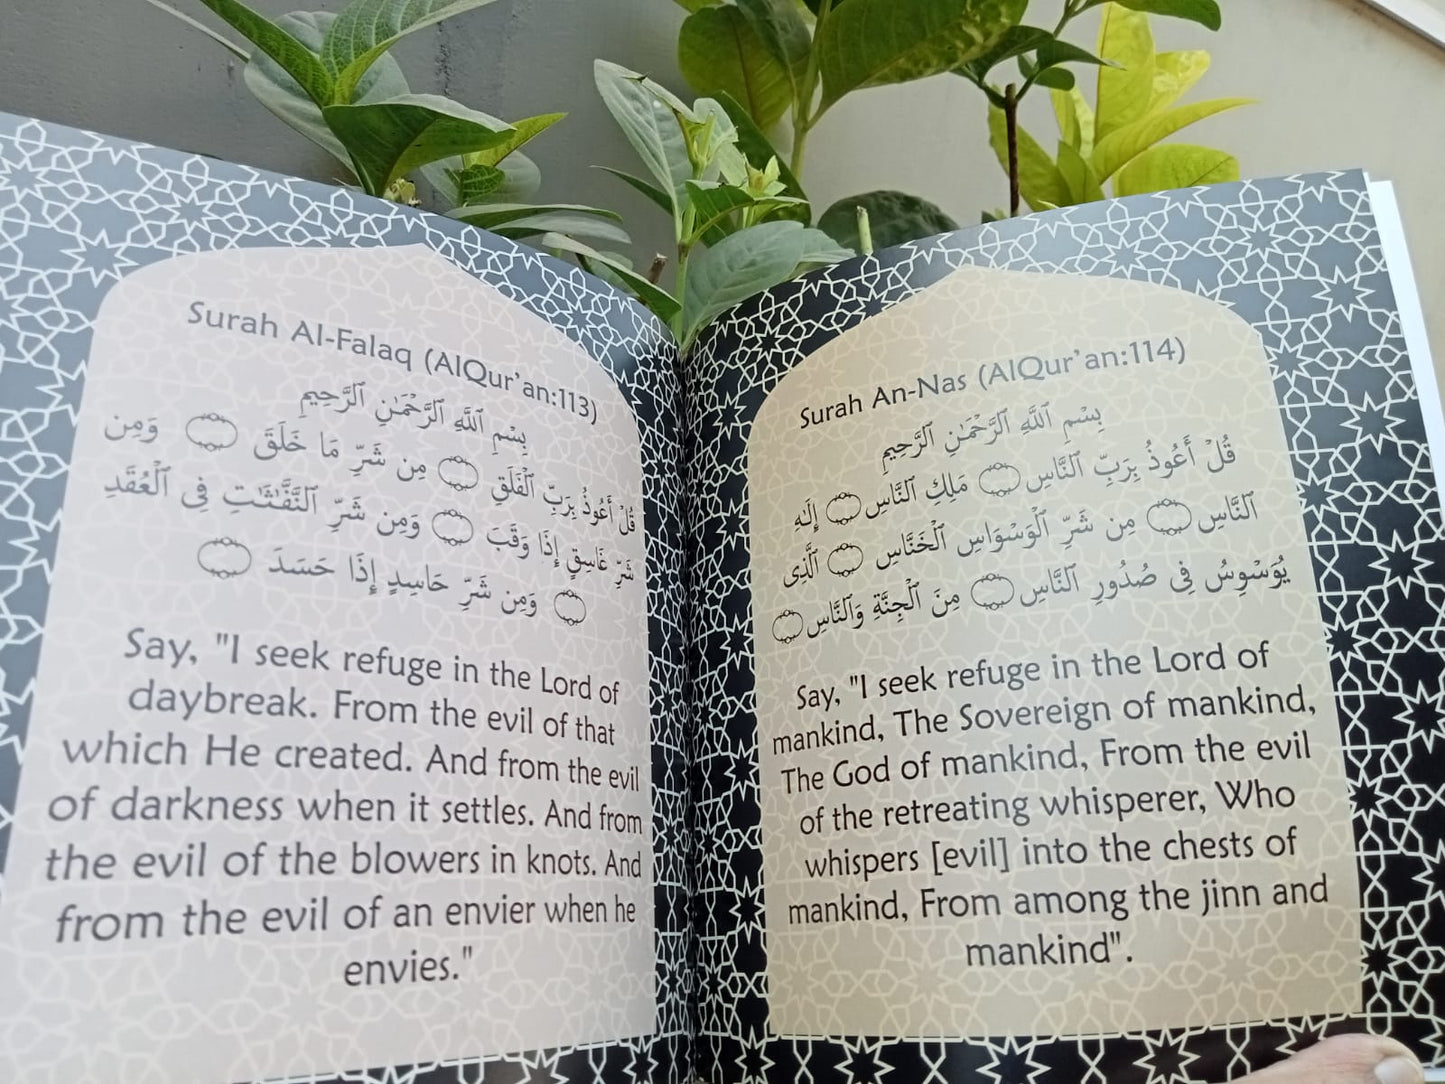 Surah Al-Falaq (AlQur'an:113)
بِسْمِ ٱللَّهِ ٱلرَّحْمَٰنِ ٱلرَّحِيمِ
قُلْ أَعُوذُ بِرَبِّ ٱلْفَلَقِ ۝ مِن شَرِّ مَا خَلَقَ ۝ وَمِن
شَرِّ غَاسِقٍ إِذَا وَقَبَ ۝ وَمِن شَرِّ ٱلنَّفَّٰثَٰتِ فِى ٱلْعُقَدِ
۝ وَمِن شَرِّ حَاسِدٍ إِذَا حَسَدَ ۝
Say, "I seek refuge in the Lord of
daybreak. From the evil of that
which He created. And from the evil
of darkness when it settles. And from
the evil of the blowers in knots. And
from the evil of an envier when he
envies."
Surah An-Nas (AlQur'an:114)
بِسْمِ ٱللَّهِ ٱلرَّحْمَٰنِ ٱلرَّحِيمِ
قُلْ أَعُوذُ بِرَبِّ ٱلنَّاسِ ۝ مَلِكِ ٱلنَّاسِ ۝ إِلَٰهِ
ٱلنَّاسِ ۝ مِن شَرِّ ٱلْوَسْوَاسِ ٱلْخَنَّاسِ ۝ ٱلَّذِى
يُوَسْوِسُ فِى صُدُورِ ٱلنَّاسِ ۝ مِنَ ٱلْجِنَّةِ وَٱلنَّاسِ ۝
Say, "I seek refuge in the Lord of
mankind, The Sovereign of mankind,
The God of mankind, From the evil
of the retreating whisperer, Who
whispers [evil] into the chests of
mankind, From among the jinn and
mankind".